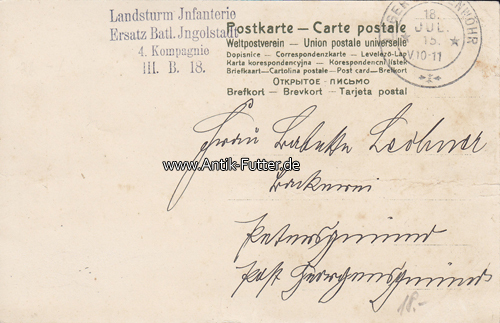 Landsturm Jnfanterie
Ersatz Batl. Jngolstadt
4. Kompagnie
III. B. 18.
Postkarte — Carte postale
Weltpostverein — Union postale universelle
Dopisnice — Correspondenzkarte — Levelező-Lap
Karta korespondencyjna — Korespondenční lístek
Briefkaart — Cartolina postale — Post card — Brefkort
Открытое письмо
Brefkort — Brevkort — Tarjeta postal
18.
JUL.
15.
V10-11
Frau Babette
www.Antik-Futter.de
Bäckerei
Petersgmünd
Post Georgensgmünd
18.-